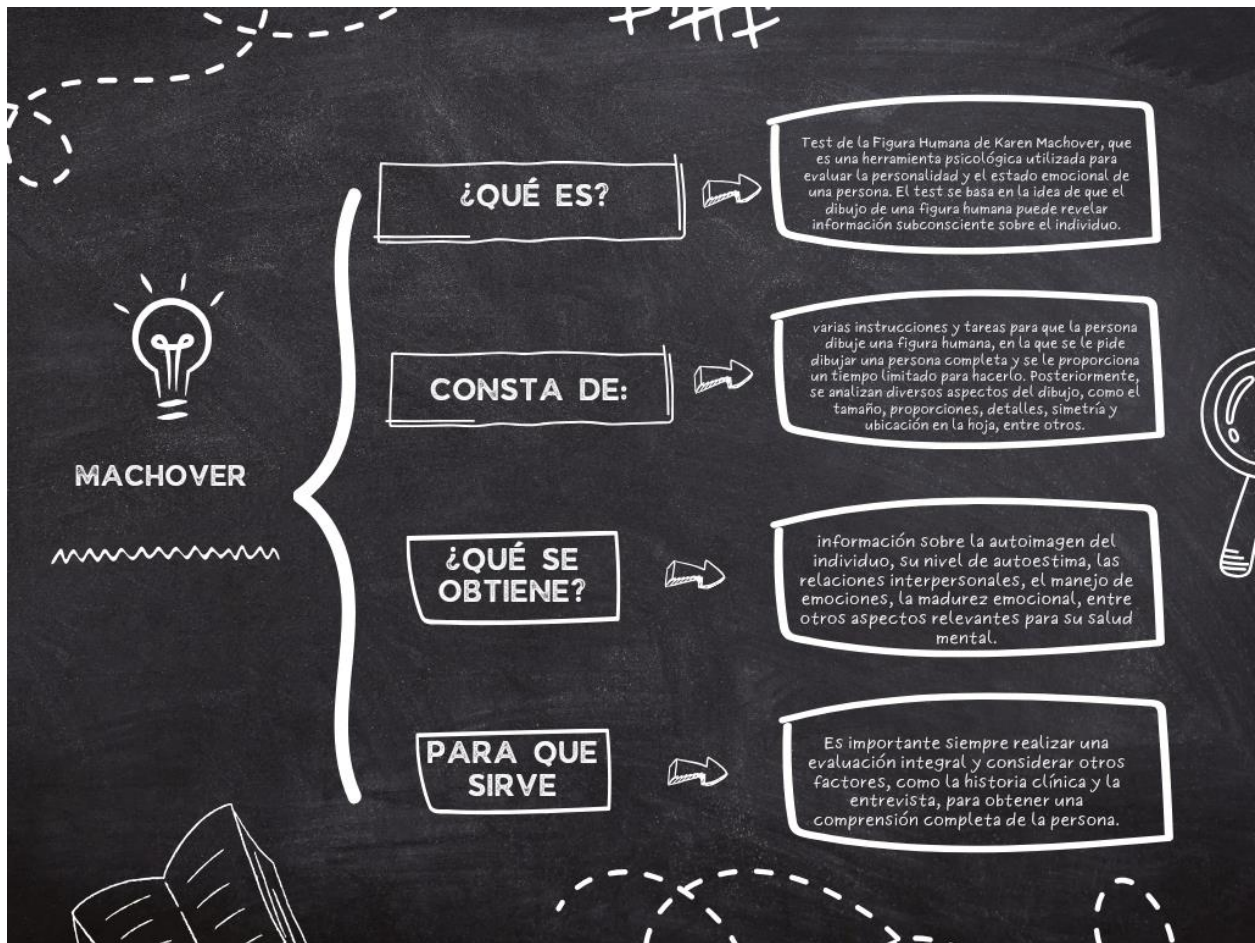 MACHOVER
¿QUÉ ES?
Test de la Figura Humana de Karen Machover, que
es una herramienta psicológica utilizada para
evaluar la personalidad y el estado emocional de
una persona. El test se basa en la idea de que el
dibujo de una figura humana puede revelar
información subconsciente sobre el individuo.
CONSTA DE:
varias instrucciones y tareas para que la persona
dibuje una figura humana, en la que se le pide
dibujar una persona completa y se le proporciona
un tiempo limitado para hacerlo. Posteriormente,
se analizan diversos aspectos del dibujo, como el
tamaño, proporciones, detalles, simetría y
ubicación en la hoja, entre otros.
¿QUÉ SE
OBTIENE?
información sobre la autoimagen del
individuo, su nivel de autoestima, las
relaciones interpersonales, el manejo de
emociones, la madurez emocional, entre
otros aspectos relevantes para su salud
mental.
PARA QUE
SIRVE
Es importante siempre realizar una
evaluación integral y considerar otros
factores, como la historia clínica y la
entrevista, para obtener una
comprensión completa de la persona.